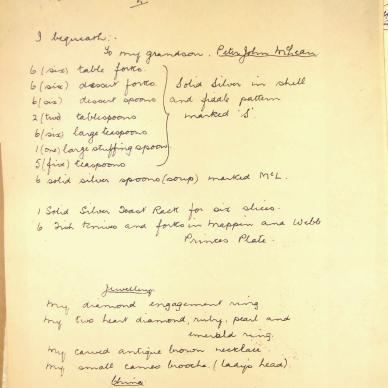 2
I bequeath:-
To my grandson. Peter John McLean
6 (six) table forks.
6 (six) dessert forks Solid Silver in shell
6 (six) dessert spoons and fiddle pattern
2 (two) tablespoons marked 'S'.
6 (six) large teaspoons
1 (one) large stuffing spoon
5 (five) teaspoons
6 solid silver spoons (soup) marked McL.
1 Solid Silver Toast Rack for six slices.
6 Fish knives and forks in Mappin and Webb
Princes Plate.
Jewellery
My diamond engagement ring
My two heart diamond, ruby, pearl and
emerald ring.
My carved antique brown necklace.
My small cameo brooche. (ladys head).
China